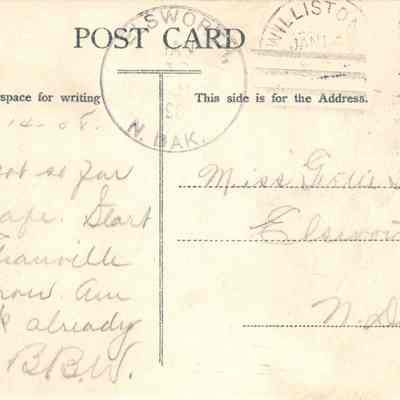 POST CARD
ELSWORTH,
JAN
N. DAK.
WILLISTON
JAN
space for writing
This side is for the Address.
14-08.
got so far
safe. Start
Granville
now. Am
already
B.B.W.
Miss
Elsworth
N. D